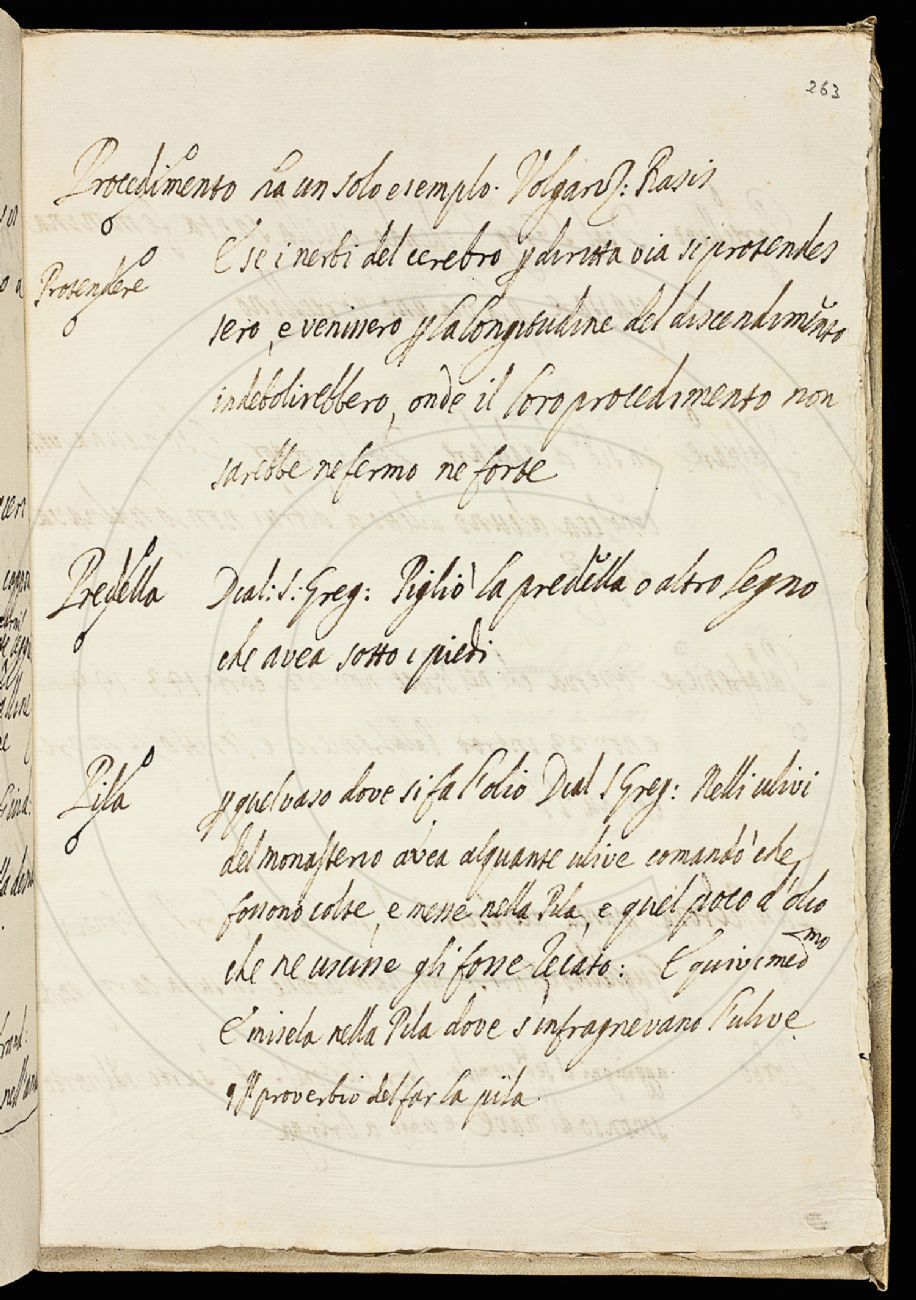 263
Procedimento ha un solo esemplo. Volgariz: Rasis
Protendere
E se i nerbi del cerebro p diritta via si protendes
sero, e venissero p la longitudine del discendimento
indebolirebbero, onde il loro procedimento non
sarebbe ne fermo ne forte
Predella Dial: S: Greg: Pigliò la predella o altro legno
che avea sotto i piedi
Pila p quel vaso dove si fa l'olio Dial S Greg: Nelli ulivi
del monasterio avea alquante ulive comandò che
fossono colte, e messe nella Pila, e quel poco d'olio
che ne uscisse gli fosse recato: E quivi med.mo
E misela nella Pila dove s'infragnevano l'ulive
proverbio del far la pila